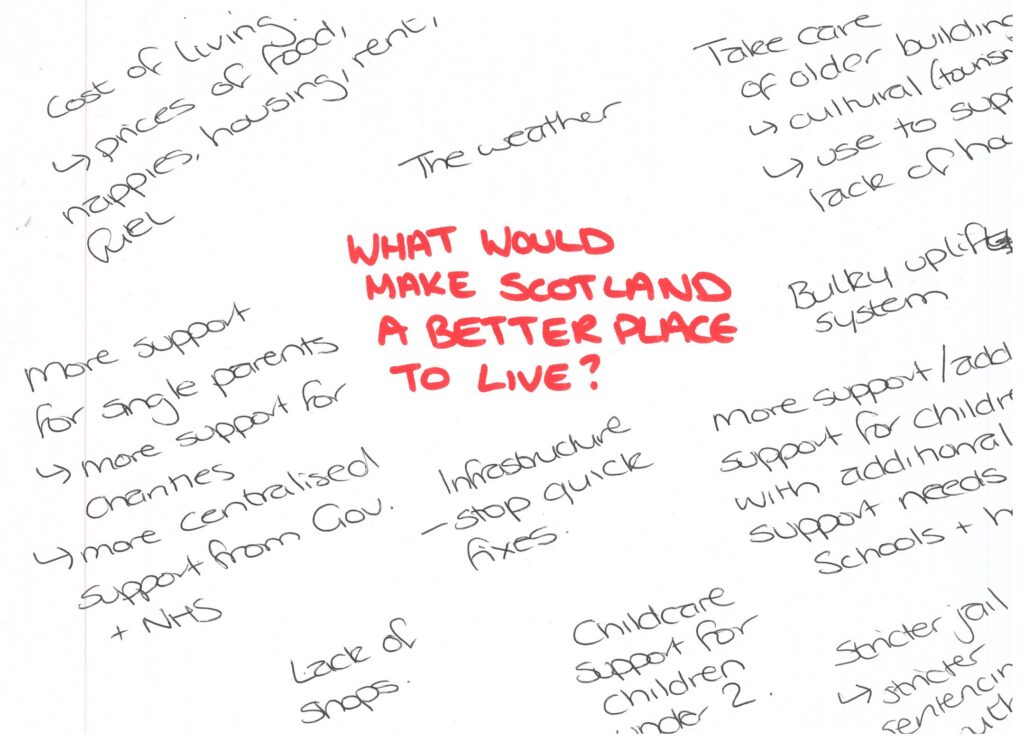 Cost of living.
↳ prices of food,
nappies, housing, rent,
fuel
The weather
Take care
of older building
↳ cultural (touris
↳ use to supp
lack of ho
WHAT WOULD
MAKE SCOTLAND
A BETTER PLACE
TO LIVE?
Bulky uplift
system
More support
for single parents
↳ more support for
charities
↳ more centralised
support from Gov.
+ NHS
Infrastructure
- stop quick
fixes.
More support/add
support for childre
with additional
support needs
Schools + h
Lack of
shops.
Childcare
support for
children
under 2.
Stricter jail
↳ stricter
sentencin